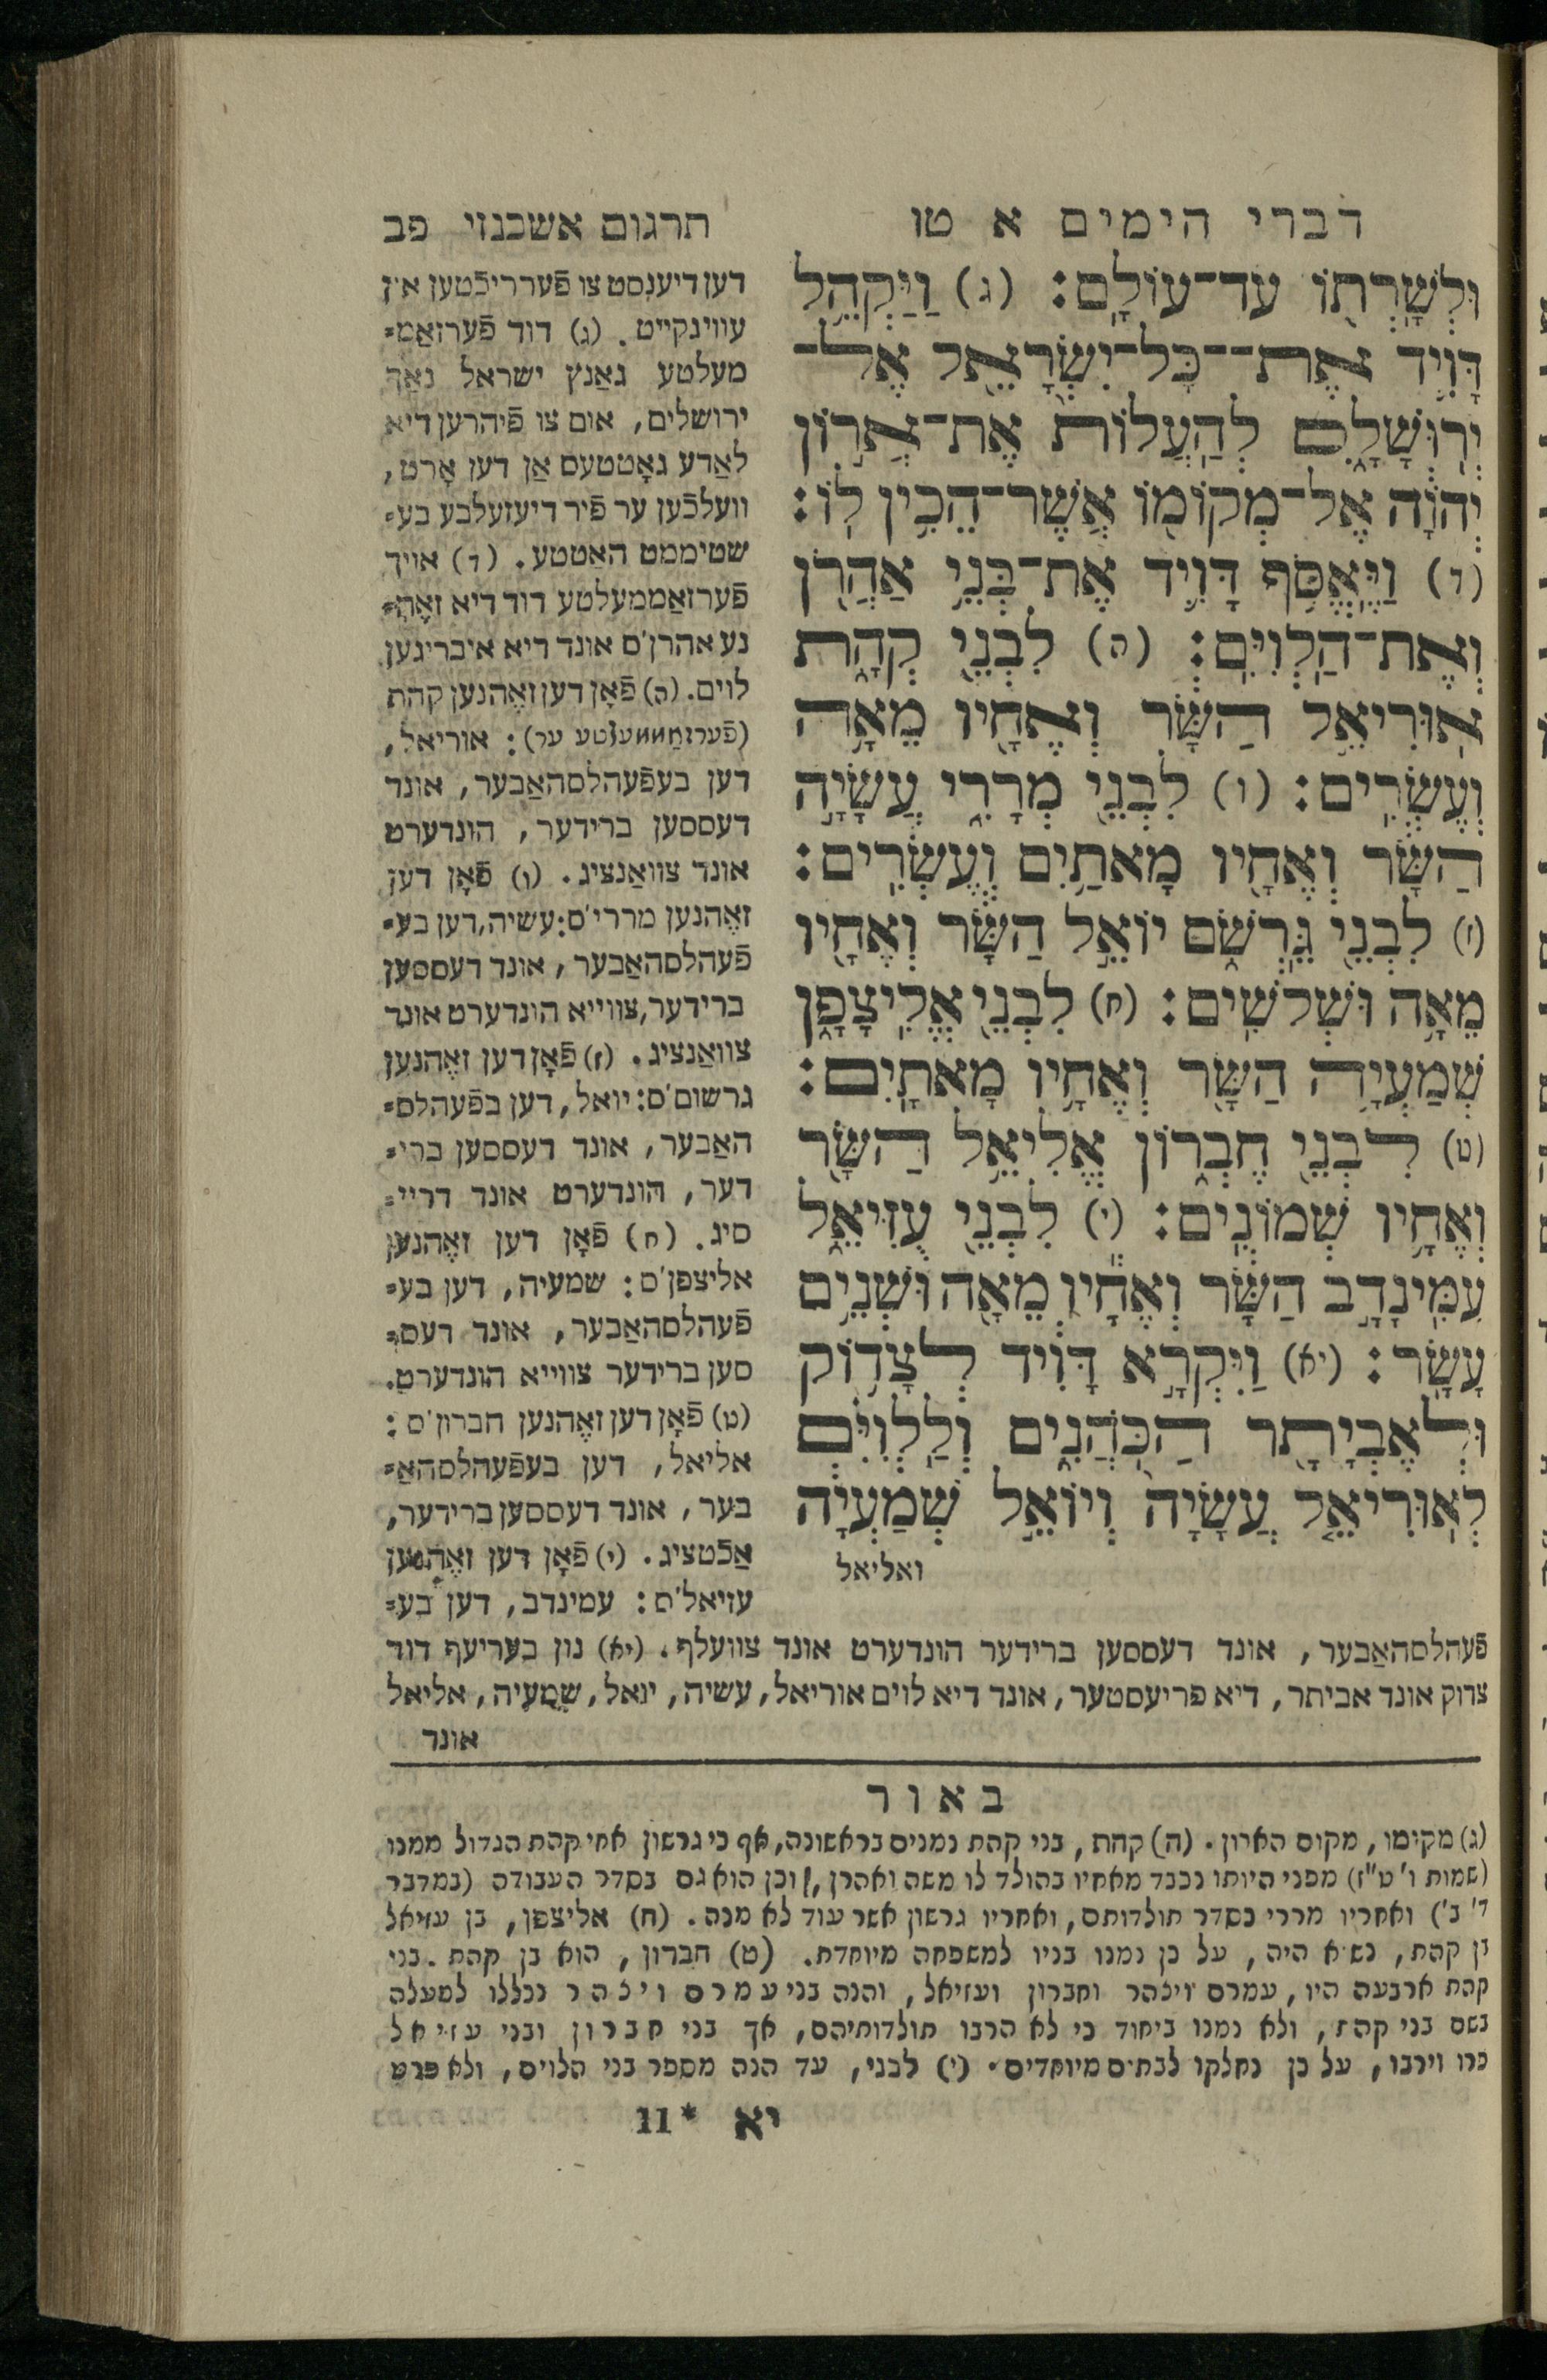 דברי הימים א טו
וּלְשָׁרְתוֹ עַד־עוֹלָם׃ (ג) וַיַּקְהֵל
דָּוִיד אֶת־כָּל־יִשְׂרָאֵל אֶל־
יְרוּשָׁלִָם לְהַעֲלוֹת אֶת־אֲרוֹן
יְהוָֹה אֶל־מְקוֹמוֹ אֲשֶׁר־הֵכִין לוֹ׃
(ד) וַיֶּאֱסֹף דָּוִיד אֶת־בְּנֵי אַהֲרֹן
וְאֶת־הַלְוִיִּם׃ (ה) לִבְנֵי קְהָת
אוּרִיאֵל הַשָּׂר וְאֶחָיו מֵאָה
וְעֶשְׂרִים׃ (ו) לִבְנֵי מְרָרִי עֲשָׂיָה
הַשָּׂר וְאֶחָיו מָאתַיִם וְעֶשְׂרִים׃
(ז) לִבְנֵי גֵּרְשֹׁם יוֹאֵל הַשָּׂר וְאֶחָיו
מֵאָה וּשְׁלֹשִׁים׃ (ח) לִבְנֵי אֱלִיצָפָן
שְׁמַעְיָה הַשָּׂר וְאֶחָיו מָאתָיִם׃
(ט) לִבְנֵי חֶבְרוֹן אֱלִיאֵל הַשָּׂר
וְאֶחָיו שְׁמוֹנִים׃ (י) לִבְנֵי עֻזִּיאֵל
עַמִּינָדָב הַשָּׂר וְאֶחָיו מֵאָה וּשְׁנֵים
עָשָׂר׃ (יא) וַיִּקְרָא דָּוִיד לְצָדוֹק
וּלְאֶבְיָתָר הַכֹּהֲנִים וְלַלְוִיִּם
לְאוּרִיאֵל עֲשָׂיָה וְיוֹאֵל שְׁמַעְיָה
ואליאל
תרגום אשכנזי פב
דען דיענסט צו פֿעררריכֿטען אין
עווינקייט. (ג) דוד פֿערזאַמ=
מעלטע גאַנץ ישראל נאַך
ירושלים, אום צו פֿיהרען דיא
לאַדע גאָטטעס אַן דען אָרט,
וועלכֿען ער פֿיר דיעזעלבע בע=
שטיממט האַטטע. (ד) אויך
פֿערזאַממעלטע דוד דיא זאָה=
נע אהרן'ס אונד דיא איבריגען
לוים. (ה) פֿאָן דען זאֶהנען קהת
(פֿערזאַממעלטע ער): אוריאל,
דען בעפֿעהלסהאַבער, אונד
דעססען ברידער, הונדערט
אונד צוואַנציג. (ו) פֿאָן דען
זאֶהנען מררי'ס: עשיה, דען בע=
פֿעהלסהאַבער, אונד דעססען
ברידער, צווייא הונדערט אונד
צוואַנציג. (ז) פֿאָן דען זאֶהנען
גרשום'ס: יואל, דען בפֿעהלס=
האַבער, אונד דעססען ברי=
דער, הונדערט אונד דריי=
סיג. (ח) פֿאָן דען זאֶהנען
אליצפן'ס: שמעיה, דען בע=
פֿעהלסהאַבער, אונד דעס=
סען ברידער צווייא הונדערט.
(ט) פֿאָן דען זאֶהנען חברון'ס:
אליאל, דען בעפֿעהלסהאַ=
בער, אונד דעססען ברידער,
אַכֿטציג. (י) פֿאָן דען זאֶהנען
עזיאל'ס: עמינדב, דען בע=
פֿעהלסהאַבער, אונד דעססען ברידער הונדערט אונד צוועלף. (יא) נון בעריעף דוד
צדוק אונד אביתר, דיא פריעסטער, אונד דיא לוים אוריאל, עשיה, יואל, שמעיה, אליאל
אונד
באור
(ג) מקומו, מקום הארון. (ה) קהת, בני קהת נמנים בראשונה, אף כי גרשון אחי קהת הגדול ממנו
(שמות ו' ט"ז) מפני היותו נכבד מאחיו בהולד לו משה ואהרן, וכן הוא גם בסדר העבודה (במדבר
ד' ב') ואחריו מררי כסדר תולדותם, ואחריו גרשון אשר עוד לא מנה. (ח) אליצפן, בן עזיאל
בן קהת, נשיא היה, על כן נמנו בניו למשפחה מיוחדת. (ט) חברון, הוא בן קהת. בני
קהת ארבעה היו, עמרם ויצהר וחברון ועזיאל, והנה בני עמרם ויצהר נכללו למעלה
בשם בני קהת, ולא נמנו ביחוד כי לא הרבו תולדותיהם, אך בני חברון ובני עזיאל
פרו וירבו, על כן נחלקו לבתים מיוחדים. (י) לבני, עד הנה מספר בני הלוים, ולא פרט
יא *11